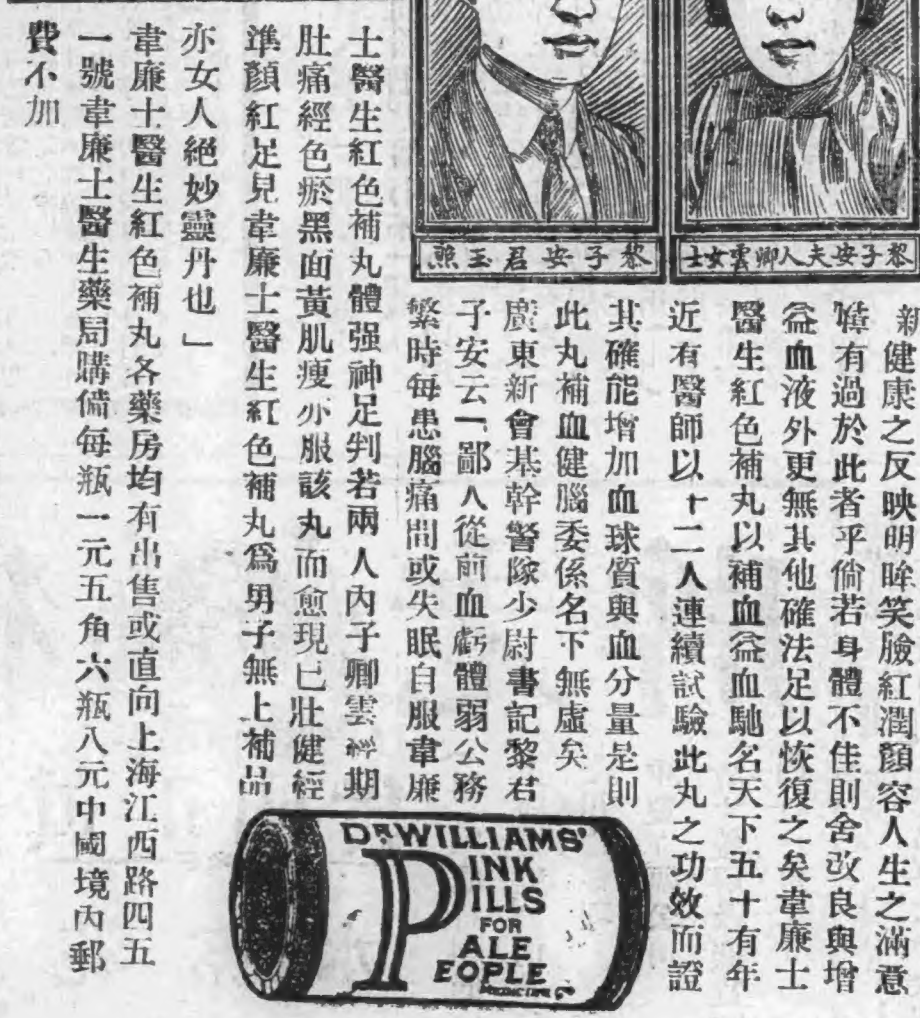 黎子安夫人卿雲女士
黎子安君玉照
新健康之反映明眸笑臉紅潤顏容人生之滿意
有過於此者乎倘若身體不佳則舍改良與增
益血液外更無其他確法足以恢復之矣韋廉士
醫生紅色補丸以補血益血馳名天下五十有年
近有醫師以十二人連續試驗此丸之功效而證
其確能增加血球質與血分量是則
此丸補血健腦委係名下無虛矣
廣東新會基幹警隊少尉書記黎君
子安云「鄙人從前血虧體弱公務
繁時每患腦痛間或失眠自服韋廉
士醫生紅色補丸體强神足判若兩人內子卿雲期
肚痛經色瘀黑面黃肌瘦亦服該丸而愈現已壯健經
準顏紅足見韋廉士醫生紅色補丸爲男子無上補品
亦女人絕妙靈丹也」
韋廉士醫生紅色補丸各藥房均有出售或直向上海江西路四五
一號韋廉士醫生藥局購備每瓶一元五角六瓶八元中國境內郵
費不加
DR. WILLIAMS'
PINK
PILLS
FOR
PALE
PEOPLE